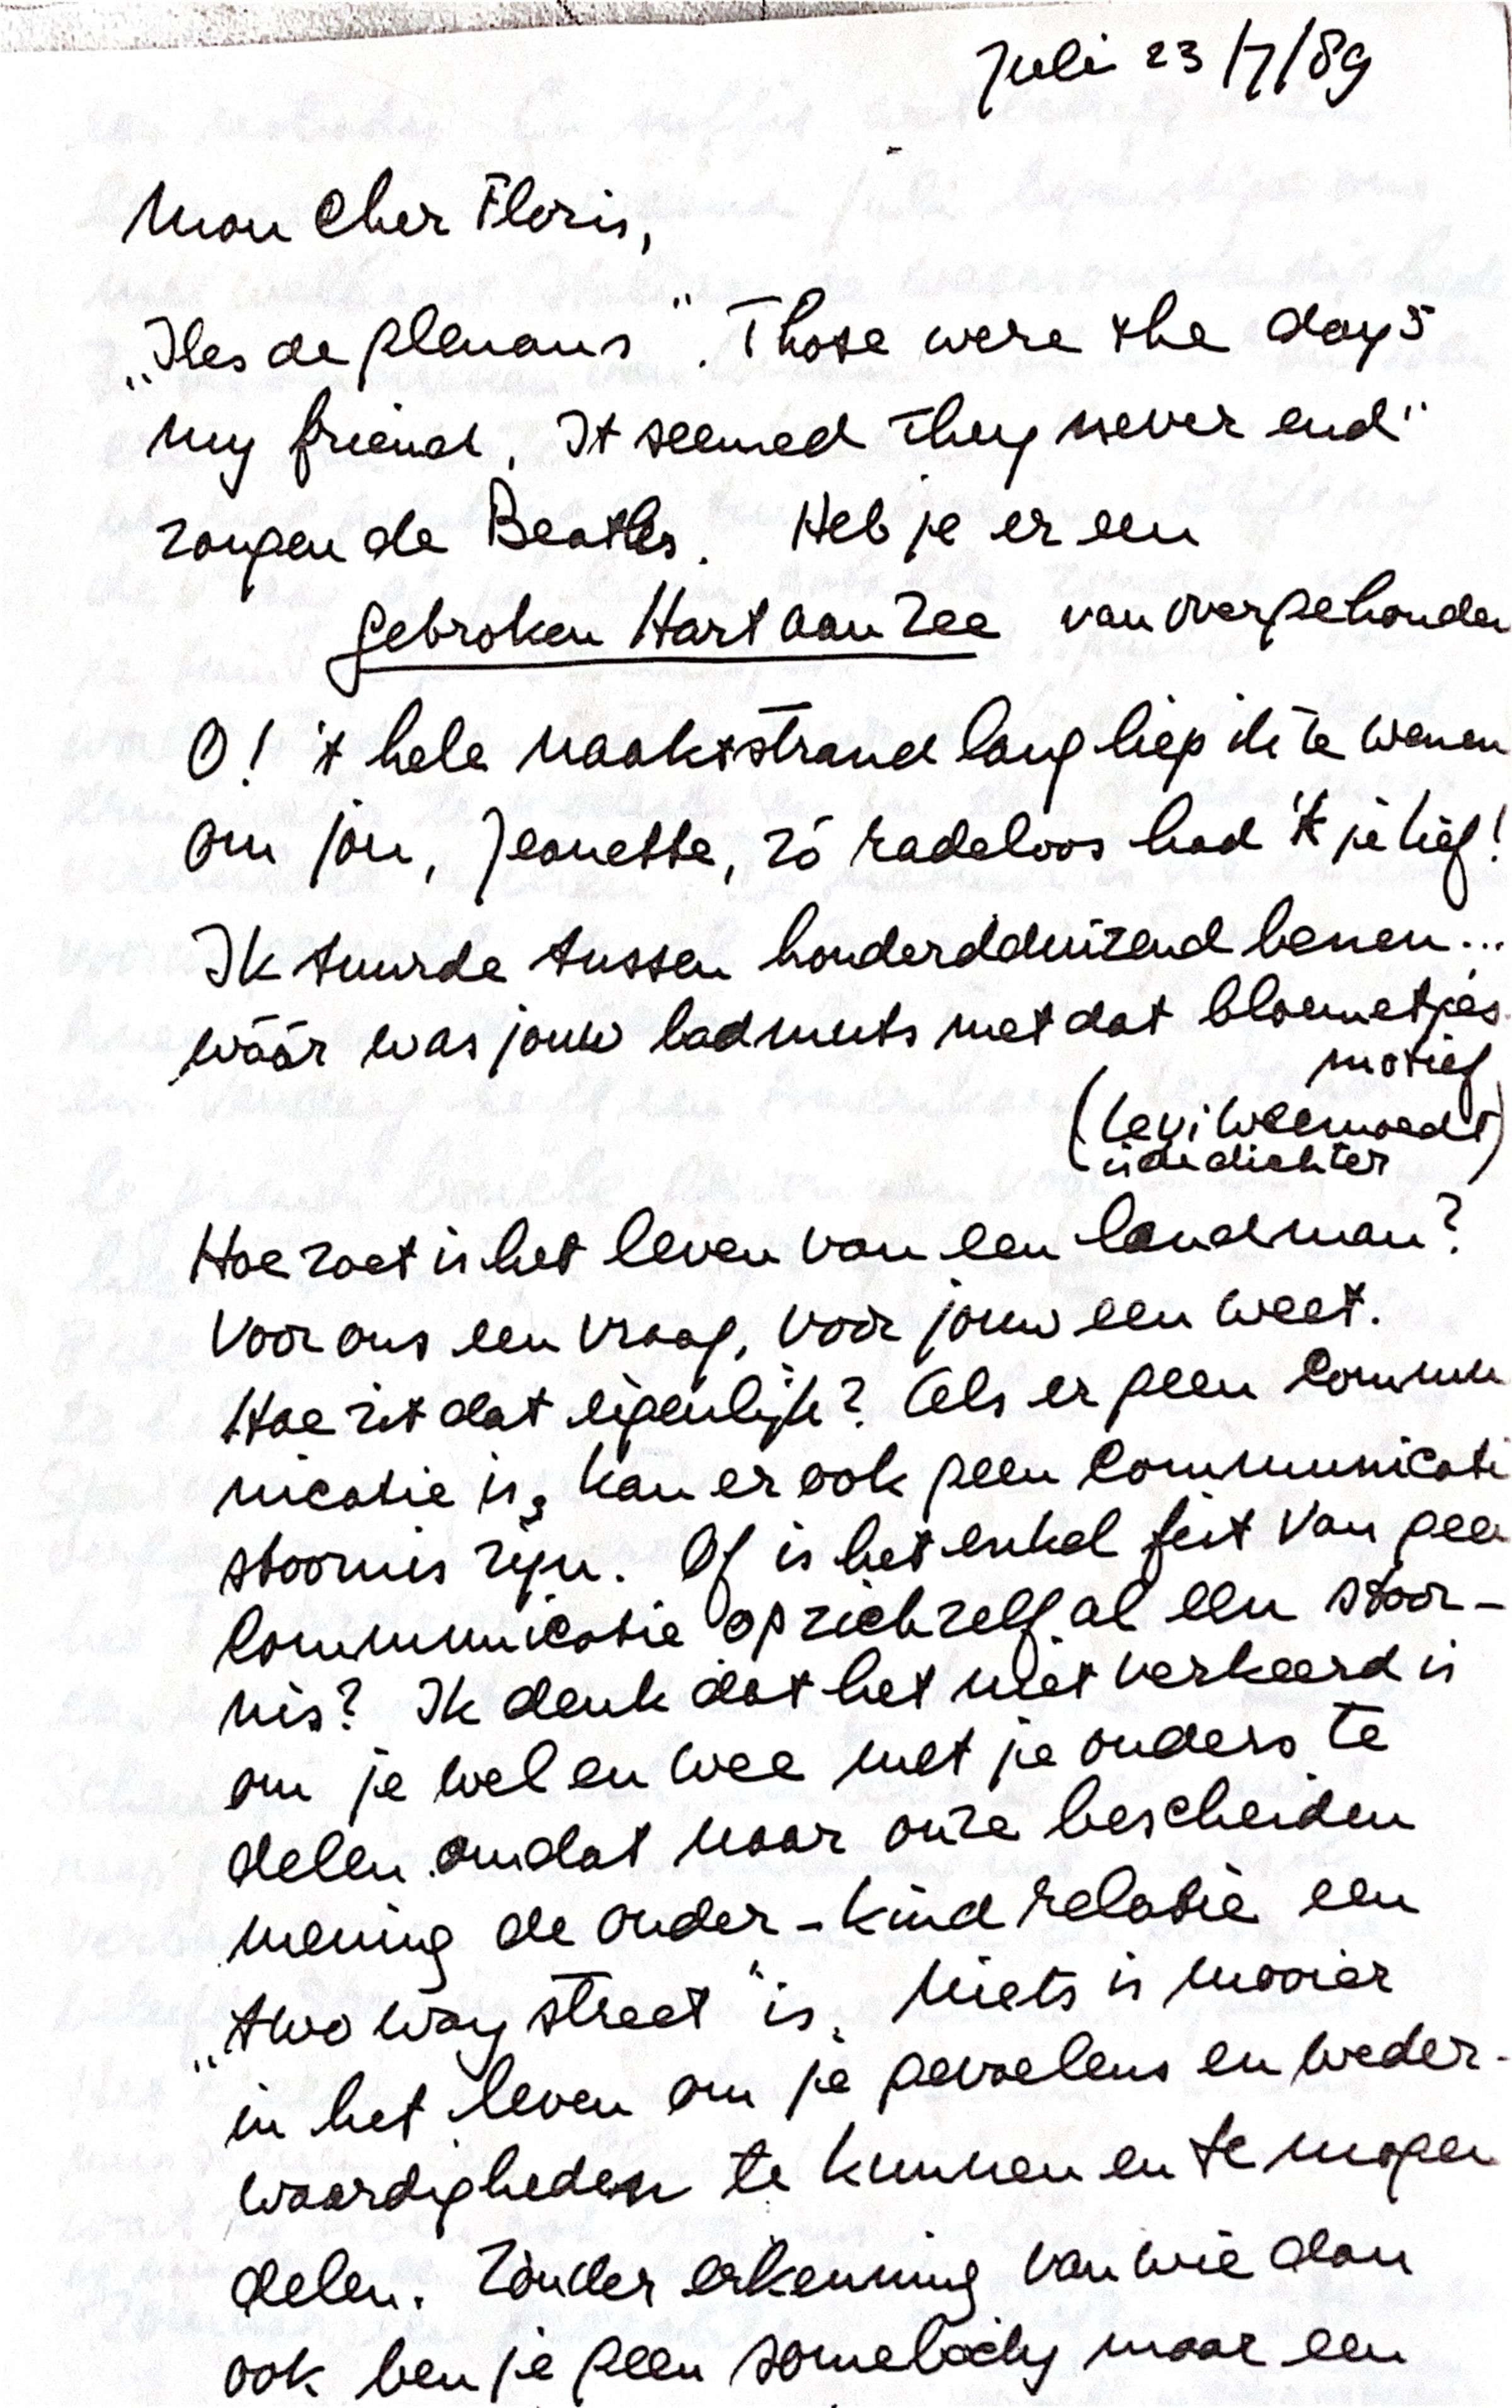 Juli 23/7/89
Mon Cher Floris,
„Iles de Glenans". Those were the days
my friend, It seemed they never end"
zongen de Beatles. Heb je er een
gebroken Hart aan Zee van overgehouden
O! 't hele naaktstrand lang liep ik te wenen
om jou, Jeanette, zó radeloos had 'k je lief!
Ik tuurde tussen honderdduizend benen...
wáár was jouw badmuts met dat bloemetjes
motief
(Levi Weemoedt)
is de dichter
Hoe zoet is het leven van een landman?
Voor ons een vraag, voor jouw een weet.
Hoe zit dat eigenlijk? Als er geen commu
nicatie is, kan er ook geen communicati
stoornis zijn. Of is het enkel feit van geen
communicatie op zich zelf al een stoor-
nis? Ik denk dat het niet verkeerd is
om je wel en wee met je ouders te
delen omdat naar onze bescheiden
mening de ouder-kind relatie een
„two way street" is. Niets is mooier
in het leven om je gevoelens en weder-
waardigheden te kunnen en te mogen
delen. Zonder erkenning van wie dan
ook ben je geen somebody maar een